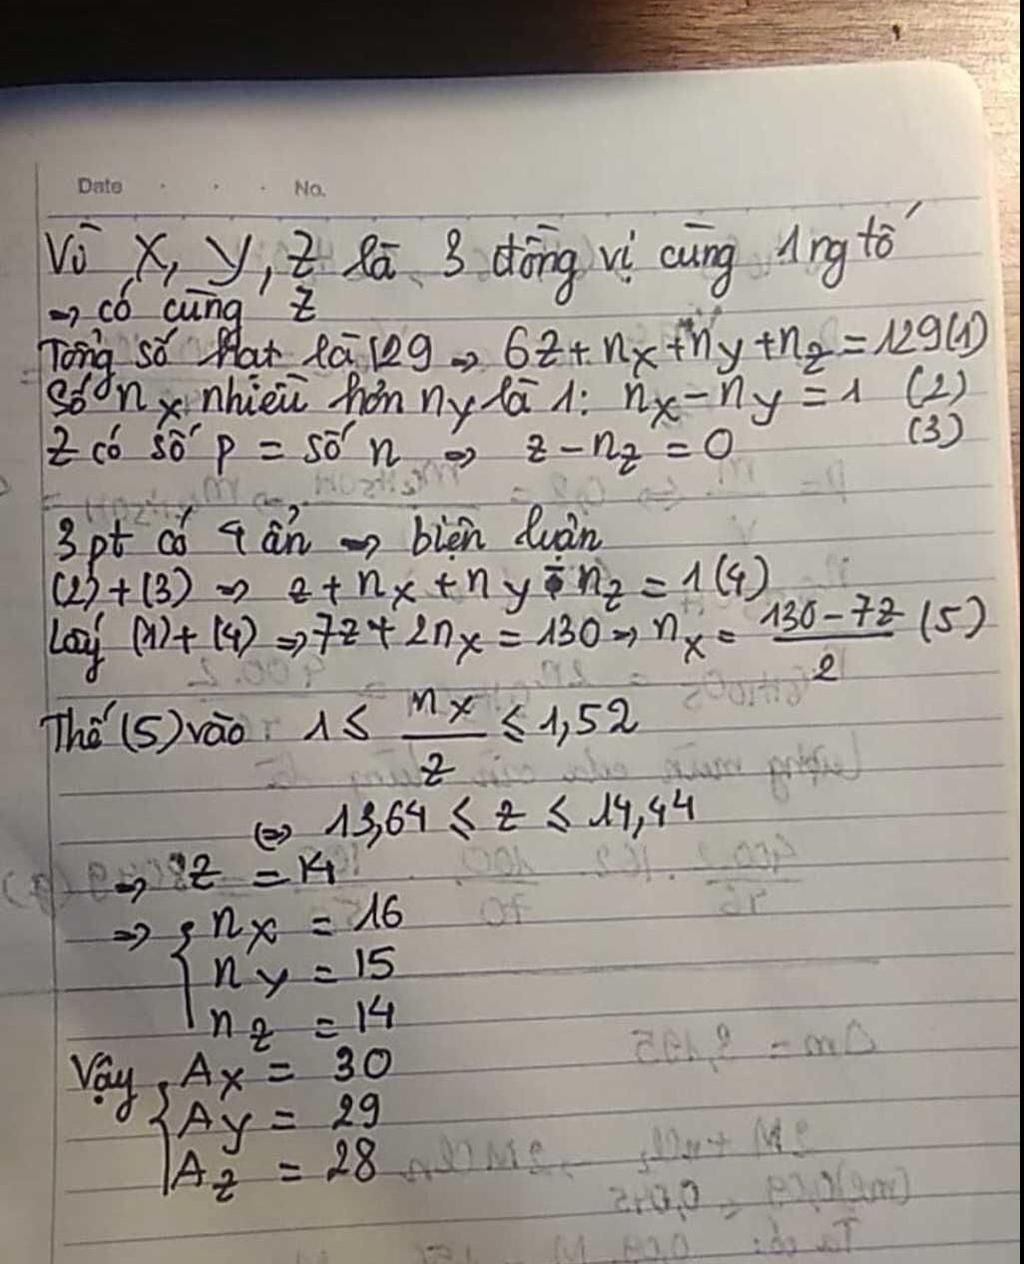 Date . . . No.
Vì X, Y, Z là 3 đồng vị cùng 1 ng tố
⇒ có cùng Z
Tổng số hạt là 129 ⇒ 6Z + nx + ny + nz = 129 (1)
Số nx nhiều hơn ny là 1: nx - ny = 1 (2)
Z có số p = số n ⇒ z - nz = 0 (3)
3 pt có 4 ẩn ⇒ biện luận
(2) + (3) ⇒ z + nx + ny - nz = 1 (4)
Lấy (1) + (4) ⇒ 7z + 2nx = 130 ⇒ nx = (130 - 7z)/2 (5)
Thế (5) vào: 1 ≤ nx/z ≤ 1,52
⇔ 13,64 ≤ z ≤ 14,44
⇒ Z = 14
⇒ { nx = 16
ny = 15
nz = 14
Vậy { Ax = 30
Ay = 29
Az = 28